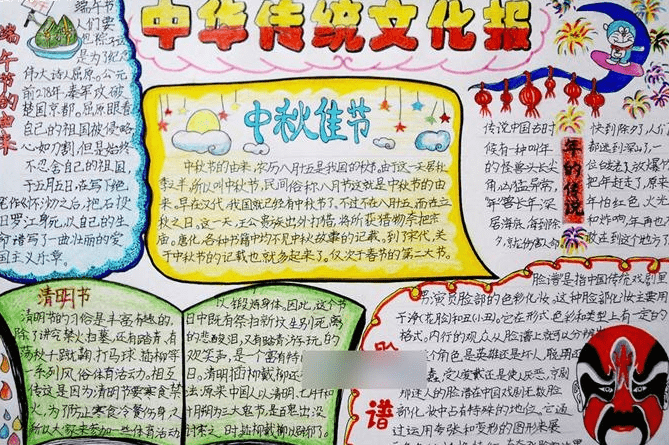 中华传统文化报
端午节的由来
端午节
人们要
是为了纪
伟大诗人屈原。公元
前278年，秦军攻破
楚国京都。屈原眼看
自己的祖国被侵略，
心如刀割，但是始终
不忍舍自己的祖国，
于五月五日，在写下绝
笔作《怀沙》之后，抱石投
汨罗江身死，以自己的生
命谱写了一曲壮丽的爱
国主义乐章。
中秋佳节
中秋节的由来，农历八月十五是我国的
所以叫中秋节，民间俗称八月节这就是中秋节的由
来。早在汉代，我国就已经有中秋节了，不过不在八月十五，而在立
秋之日。这一天，王公贵族出外打猎，将所获猎物祭把宗
庙。唐化，各种书籍中均不见中秋故事的记载。到了宋代，关
于中秋节的记载也就多起来了。仅次于春节的第二大节。
年的传说
传说中国古时
候有一种叫年
的怪兽头长尖
角，凶猛异常，
年兽长年深
居海底，每到除
夕，
快到除夕了，人们
都逃到深山，一
把年赶走了，原来
年怕红色、火光
和炸响，年再也
敢走到这个地方了
清明节
清明节的习俗是丰富有趣的，
除了讲究禁火、扫墓，还有踏青、
荡秋千、蹴鞠、打马球、插柳等
一系列风俗体育活动。相
传这是因为清明节要寒食禁
火，为了防止寒食冷餐伤身，
所以大家来参加一些体育活动
以锻炼身体。因此，这个节
日中既有祭扫新坟生别死离
的悲酸泪，又有踏青游玩的
欢笑声，是一个富有特
日。清明插柳戴柳还
法：原来中国人以清明、七月
十月朔为三大鬼节，是百鬼出没
之时
脸谱
脸谱是指中国传统戏剧里
男演员脸部的色彩化妆。这种脸部化妆主要用
于净(花脸)和丑(小丑)。它在形式、色彩和类型上有一定的
格式。内行的观众从脸谱上就可以分辨
个角色是英雄还是坏人，聪明
受人爱戴还是使人厌恶。京剧
那迷人的脸谱在中国戏剧无数脸
化妆中占有特殊的地位。它通
过运用夸张和变形的图形来展